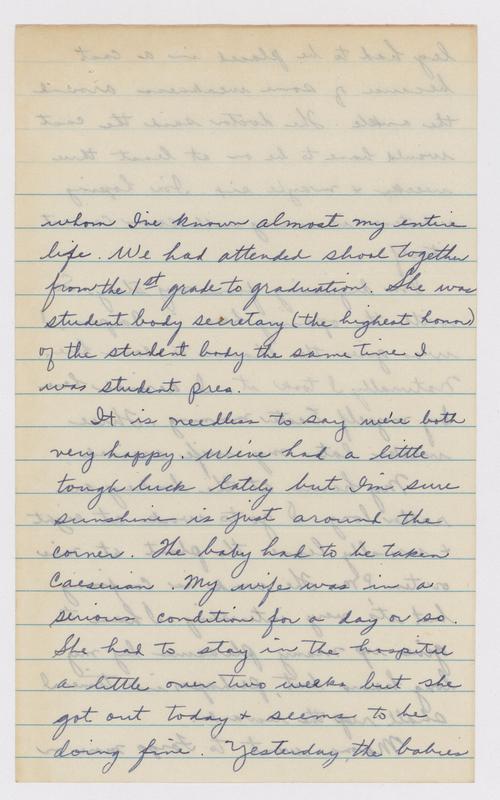 whom I've known almost my entire
life. We had attended shool together
from the 1st grade to graduation. She was
student body secretary (the highest honor)
of the student body the same time I
was student pres.
It is needless to say we're both
very happy. We've had a little
tough luck lately but I'm sure
sunshine is just around the
corner. The baby had to be taken
Caeserian. My wife was in a
serious condition for a day or so.
She had to stay in the hospital
a little over two weeks but she
got out today & seems to be
doing fine. Yesterday the babies